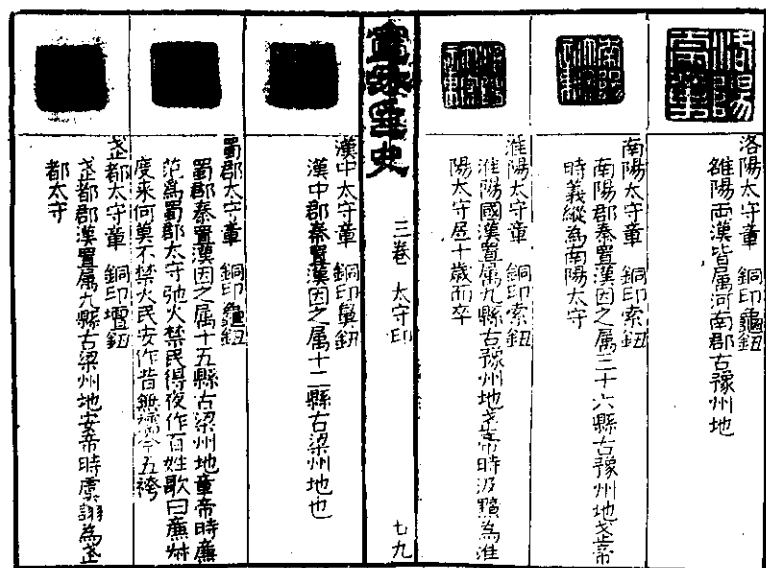 洛陽太守章 銅印龜鈕
雒陽兩漢皆屬河南郡古豫州地
南陽太守章 銅印索鈕
南陽郡秦置漢因之屬三十六縣古豫州地武帝
時義縱為南陽太守
淮陽太守章 銅印索鈕
淮陽國漢置屬九縣古豫州地武帝時汲黯為淮
陽太守居十歲而卒
三卷 太守印
七九
漢中太守章 銅印鼻鈕
漢中郡秦置漢因之屬十二縣古梁州地也
蜀郡太守章 銅印龜鈕
蜀郡秦置漢因之屬十五縣古梁州地章帝時廉
范為蜀郡太守弛火禁民得夜作百姓歌曰廉叔
度來何莫不禁火民安作昔無襦今五袴
武都太守章 銅印壇鈕
武都郡漢置屬九縣古梁州地安帝時虞詡為武
都太守